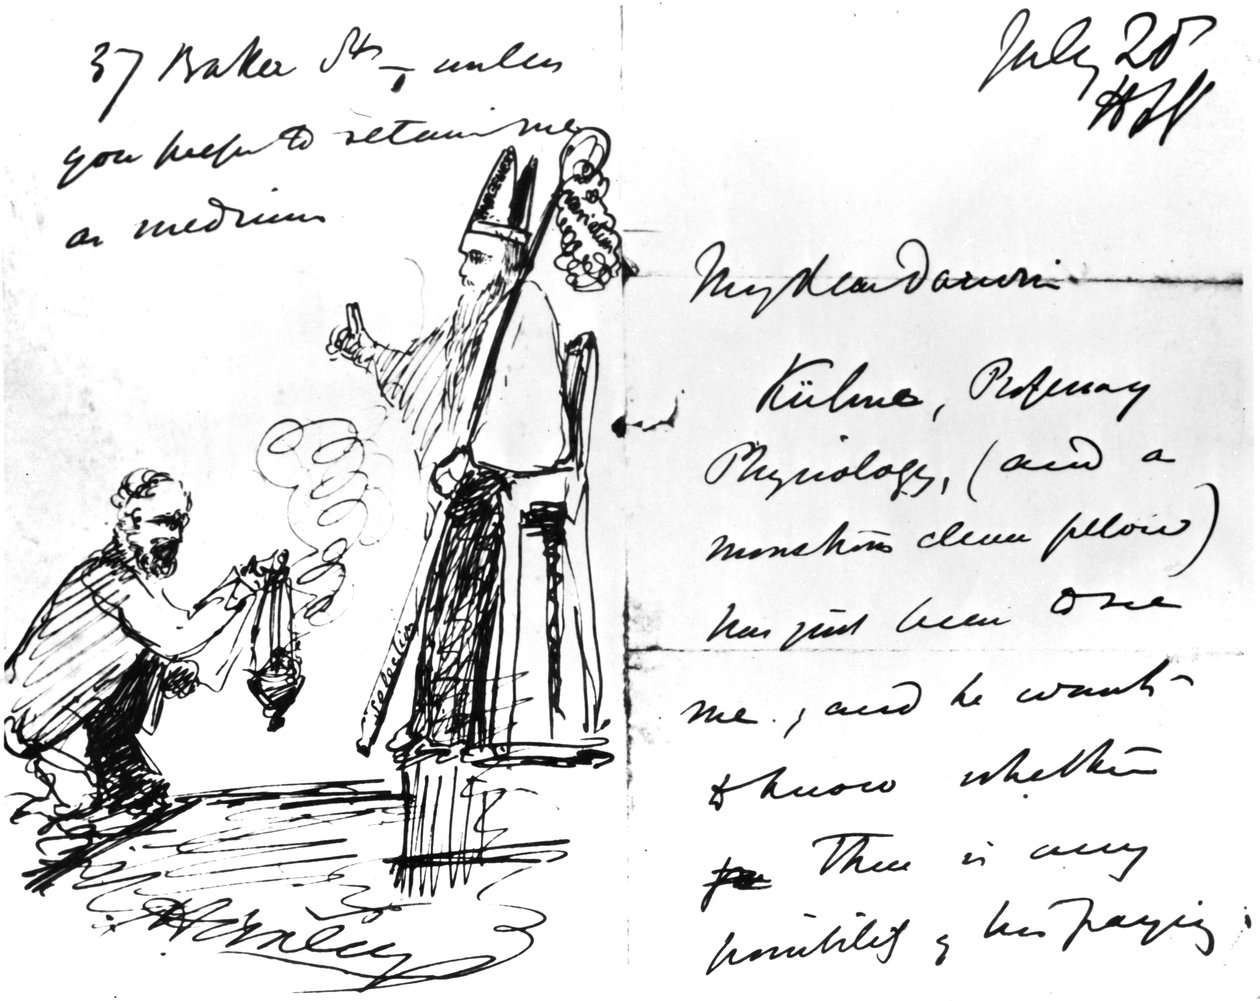 37 Baker St, unless
you prefer to retain me
as medium
July 20
My dear Darwin
Kühne, Professor of
Physiology, (and a
monstrous clever fellow)
has just been to see
me, and he wants
to know whether
there is any
possibility of his paying